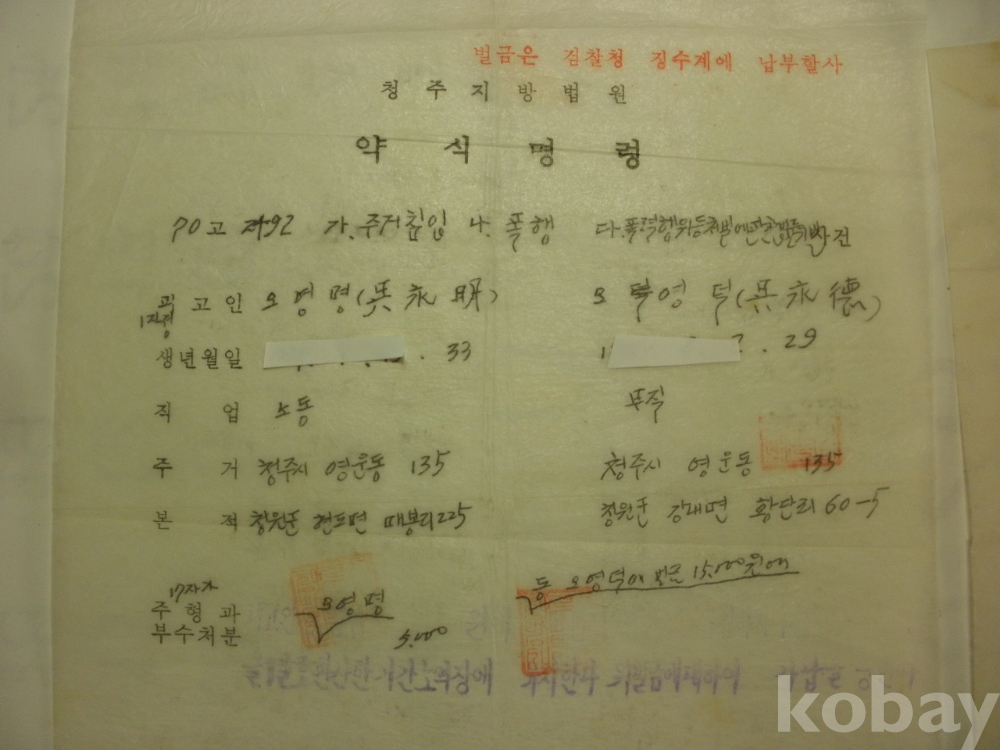 벌금은 검찰청 징수계에 납부할사
청주지방법원
약식명령
70고 7192 가. 주거침입 나. 폭행 다. 폭력행위등처벌에관한법률위반 사건
피고인 오영명(吳永明) 오영덕(吳永德)
1자정
생년월일 . 33 . 29
직업 노동 무직
주거 청주시 영운동 135 청주시 영운동 135
본적 청원군 현도면 매봉리 225 청원군 강내면 황탄리 60-5
17자가
주형과 오영명 동 오영덕에 벌금 15,000원에
부수처분 5,000
환산한 기간 노역장에 위 벌금에 대하여
kobay